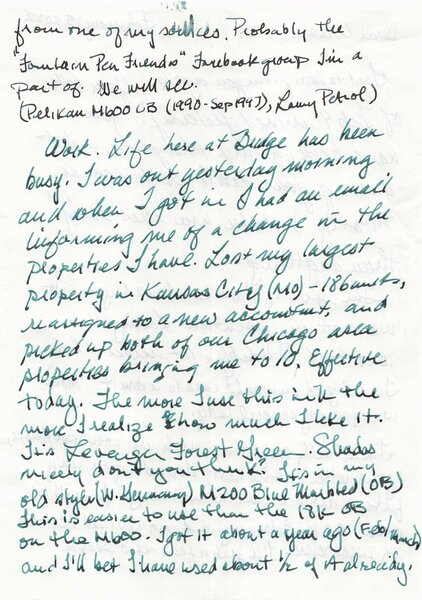 from one of my sources. Probably the
"Fountain Pen Friends" Facebook group I'm a
part of. We will see.
(Pelikan M600 OB (1990-Sep 1997), Lamy Petrol)
Work. Life here at Budge has been
busy. I was out yesterday morning
and when I got in I had an email
informing me of a change in the
properties I have. Lost my largest
property in Kansas City (MO) - 186 units,
reassigned to a new accountant, and
picked up both of our Chicago area
properties bringing me to 10. Effective
today. The more I use this ink the
more I realize how much I like it.
It's Levenger Forest Green. Shades
nicely don't you think? It's in my
old style (W. Germany) M200 Blue Marbled (OB)
This is easier to use than the 18k OB
on the M600. I got it about a year ago (Feb/March)
and I'll bet I have used about 1/2 of it already.